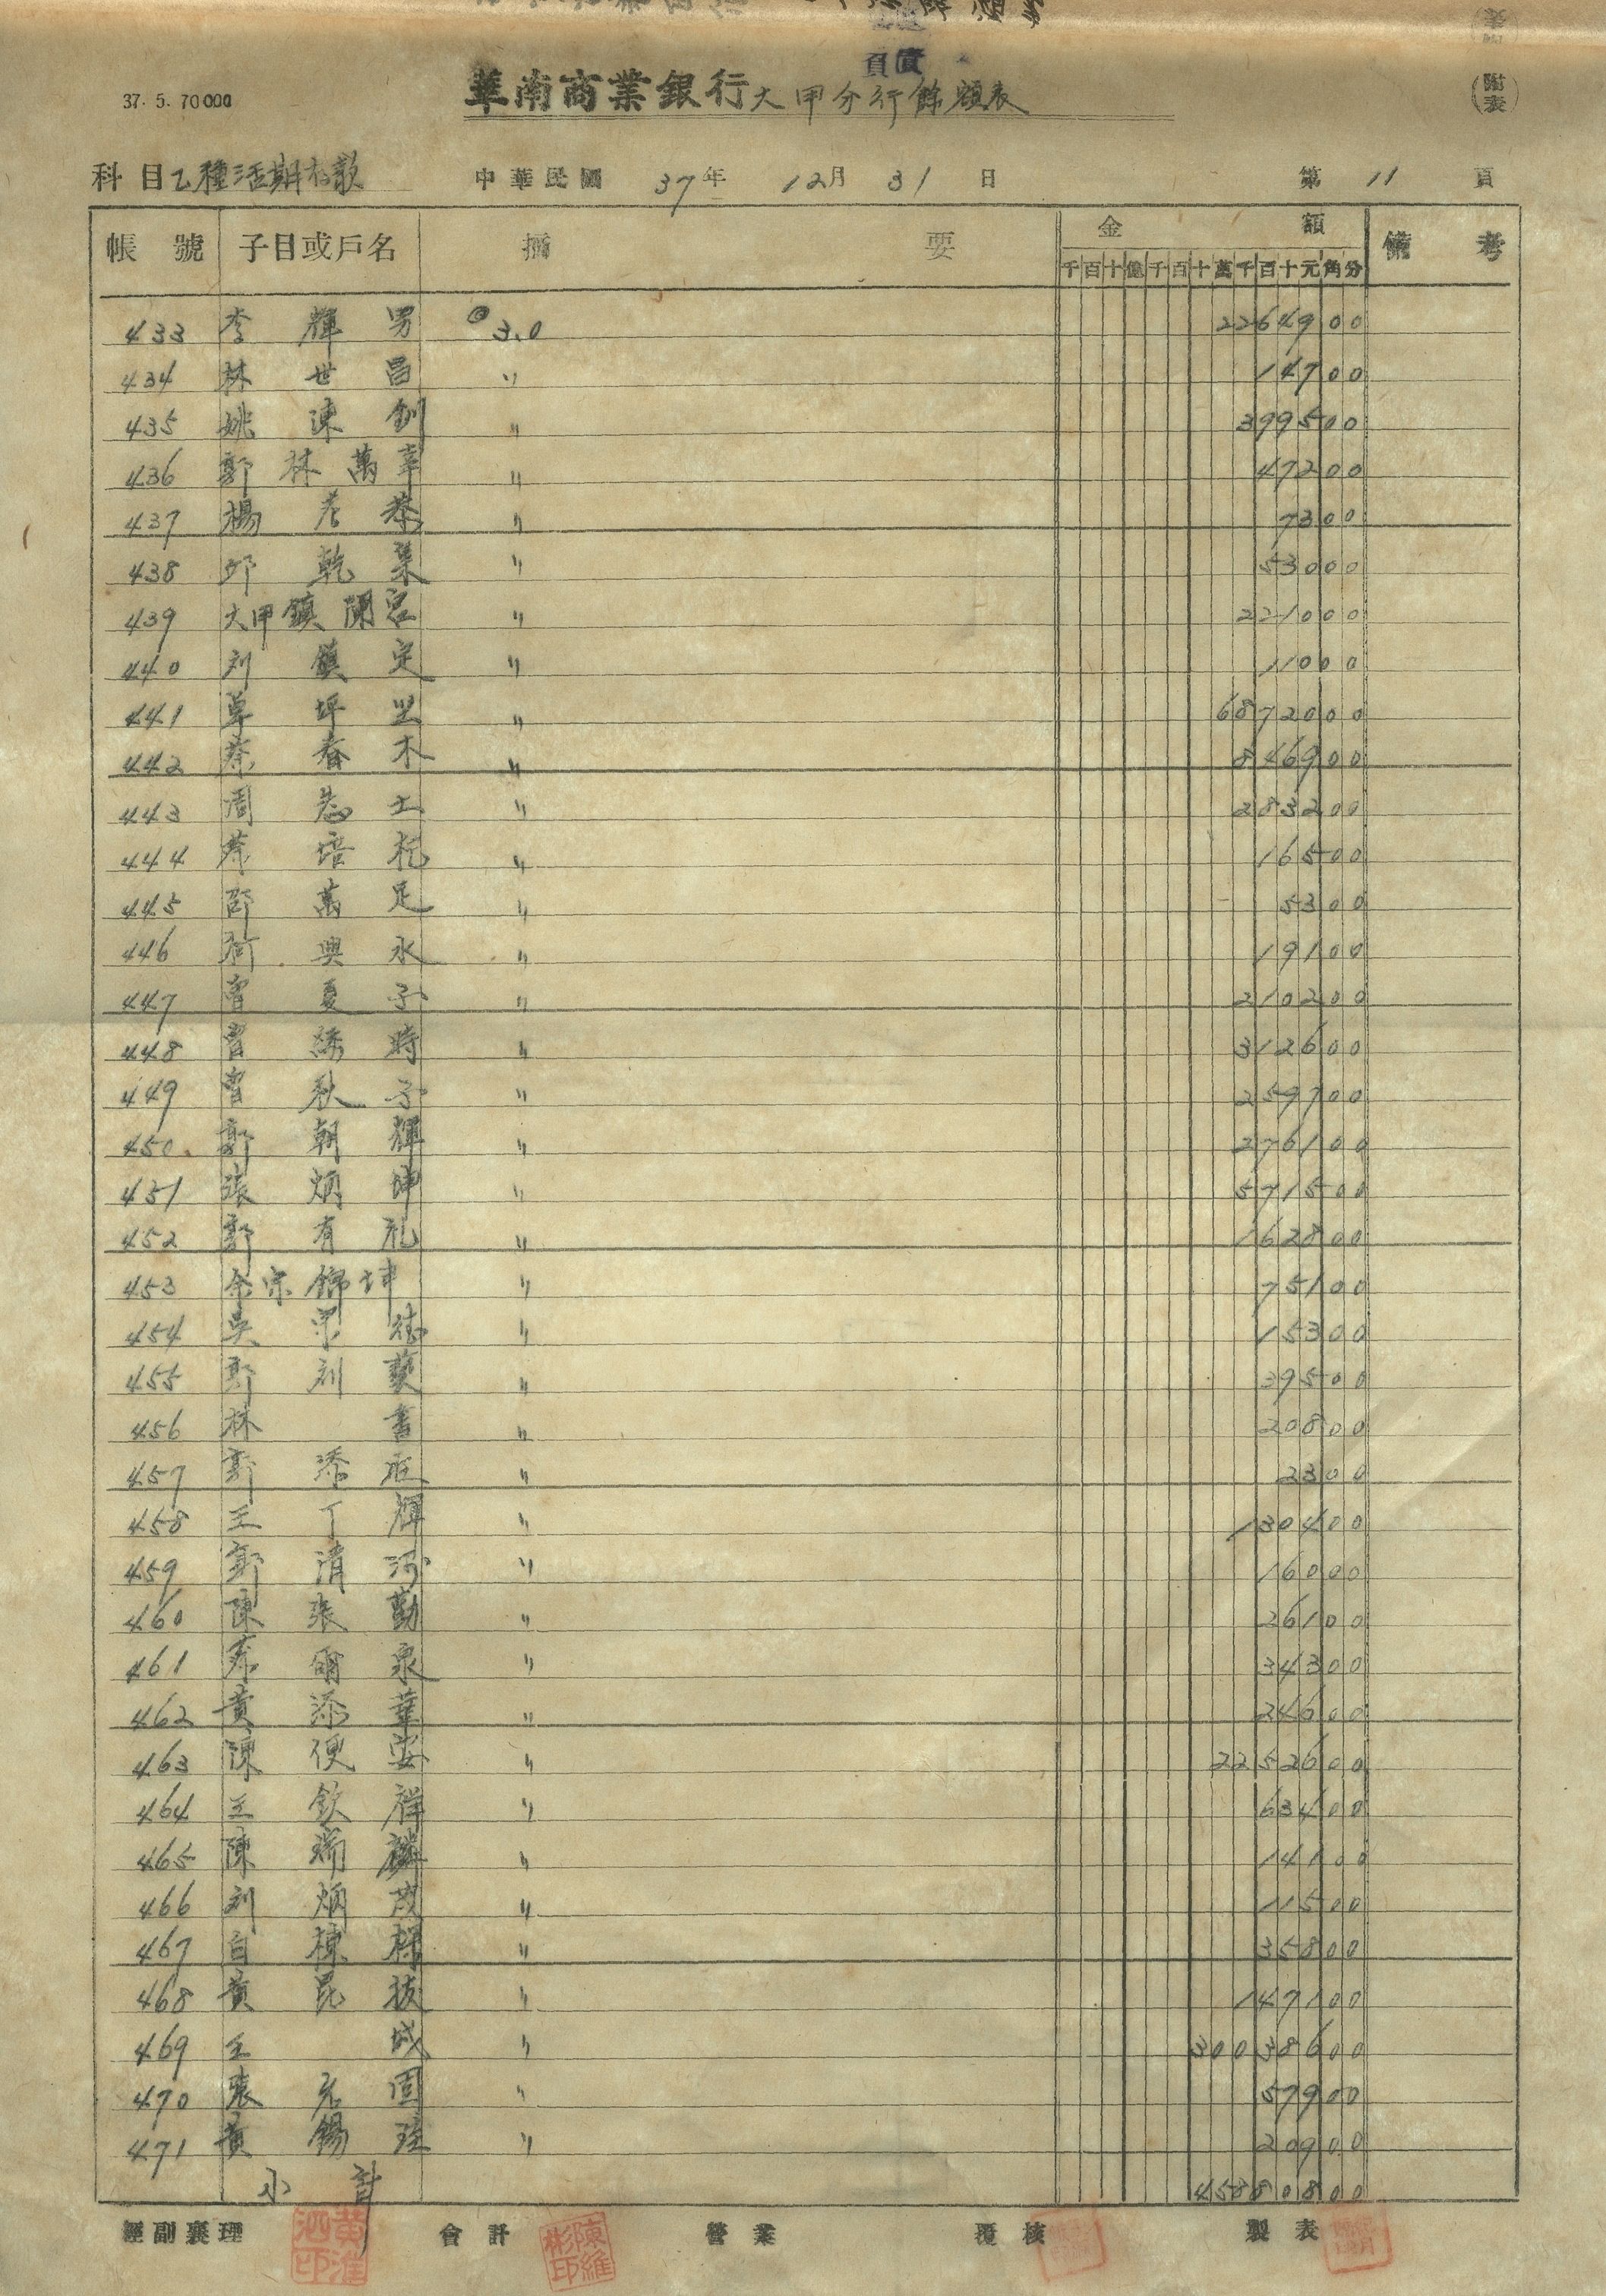 37. 5. 70000
華南商業銀行大甲分行餘額表
(附表)
科目乙種活期存款 中華民國37年12月31日 第11頁
帳號 子目或戶名 摘要 金額 備考
千百十億千百十萬千百十元角分
433 李輝男 @3.0 22649 00
434 林世昌 〃 147 00
435 姚陳釧 〃 3995 00
436 郭林萬幸 〃 472 00
437 楊老恭 〃 73 00
438 邱乾 〃 530 00
439 大甲鎮瀾宮 〃 2210 00
440 刘鎮定 〃 110 00
441 草坪 〃 68720 00
442 蔡春木 〃 8469 00
443 周 土 〃 2832 00
444 蔡培 〃 165 00
445 邵萬足 〃 53 00
446 柯興水 〃 191 00
447 曾夏子 〃 2102 00
448 曾綉時 〃 3126 00
449 曾秋子 〃 2597 00
450 郭朝輝 〃 2761 00
451 張炳坤 〃 5715 00
452 郭有礼 〃 1628 00
453 余宗錦坤 〃 751 00
454 吳 德 〃 153 00
455 郭刘 〃 395 00
456 林書 〃 208 00
457 郭添旺 〃 23 00
458 王丁輝 〃 1304 00
459 郭清河 〃 160 00
460 陳張勤 〃 261 00
461 蔡爾泉 〃 343 00
462 黃添華 〃 246 00
463 陳便安 〃 22526 00
464 王欽祥 〃 634 00
465 陳瑞麟 〃 141 00
466 刘炳茂 〃 115 00
467 白棟樑 〃 358 00
468 黃昆板 〃 1471 00
469 王城 〃 300386 00
470 張光固 〃 579 00
471 黃錫 〃 209 00
小計 458808 00
經副襄理 會計 營業 覆核 製表
黃淮泗印
陳維彬印